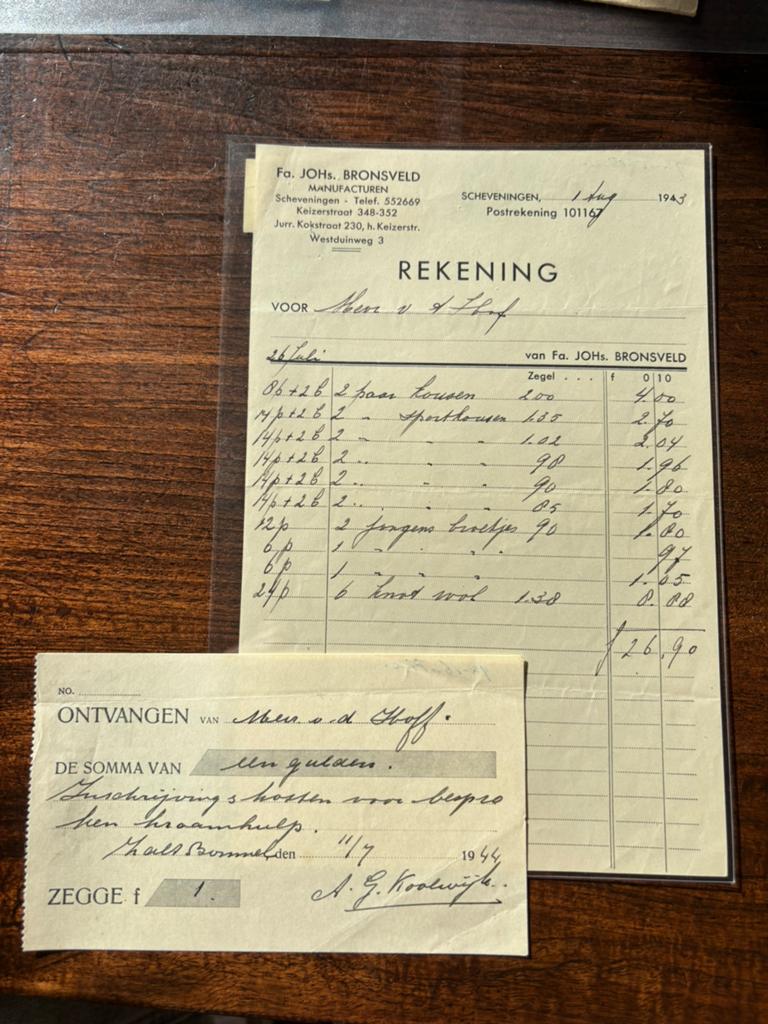 Fa. JOHs. BRONSVELD
MANUFACTUREN
Scheveningen - Telef. 552669
Keizerstraat 348-352
Jurr. Kokstraat 230, h. Keizerstr.
Westduinweg 3
SCHEVENINGEN, 1 Aug 1943
Postrekening 101167
REKENING
VOOR Mevr v d Hof
26 Juli van Fa. JOHs. BRONSVELD
Zegel . . . f 0 10
8p+2b 2 paar kousen 2.00 4.00
14p+2b 2 " sportkousen 1.35 2.70
14p+2b 2 " " " 1.02 2.04
14p+2b 2 " " " 98 1.96
14p+2b 2 " " " 90 1.80
14p+2b 2 " " " 85 1.70
12p 2 jongens broekjes 90 1.80
6p 1 " " " 97
6p 1 " " " 1.05
24p 6 knot wol 1.38 8.88
f 26.90
NO.
ONTVANGEN VAN Mevr. v.d. Hoff.
DE SOMMA VAN een gulden.
Inschrijvingskosten voor bespro
ken kraamhulp.
Zalt Bommel, den 11/7 1944
ZEGGE f 1. A. G. Koolwijk.